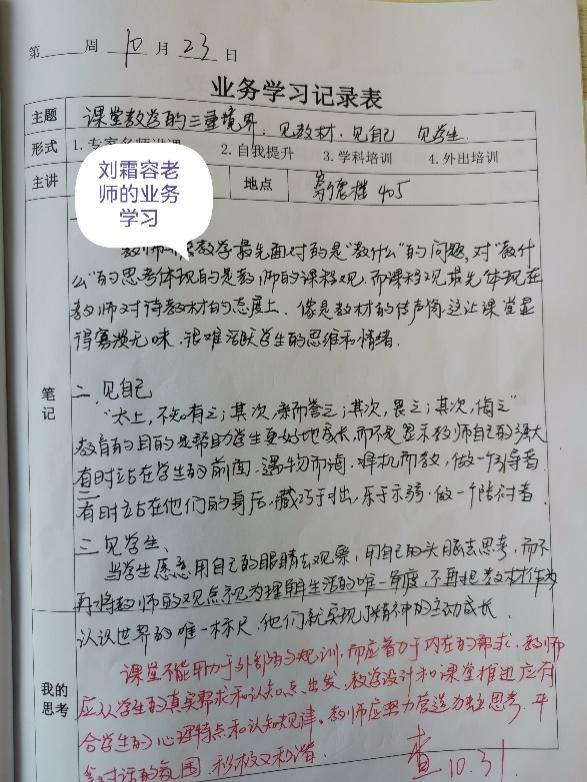 第 周 10 月 23 日
业务学习记录表
主题 课堂教学的三重境界：见教材·见自己 见学生
形式 1. 2. 自我提升 3. 学科培训 4. 外出培训
主讲 地点 405
刘霜容老
师的业务
学习
教学最先面对的是“教什么”的问题，对“教什
么”的思考体现的是教师的课程观，而课程观最先体现在
教师对待教材的态度上．像是教材的传声筒，这让课堂显
得寡淡无味，很难活跃学生的思维和情绪．
笔记
二、见自己
“太上，不知有之；其次，亲而誉之；其次，畏之；其次，侮之”
教育的目的是帮助学生更好地成长，而不是显示教师自己的强大
有时站在学生的前面，遇物而诲，择机而教，做一个引导者．
有时立在他们的身后，藏巧于拙，乐于示弱，做一个陪衬者．
三、见学生、
当学生愿意用自己的眼睛去观察，用自己的头脑去思考，而不
再将教师的观点视为理解生活的唯一角度，不再把教材作为
认识世界的唯一标尺，他们就实现了精神的主动成长．
我的
思考
课堂不能用力于外部的规训，而应着力于内在的需求．教师
应从学生的真实需求和认知点出发，教学设计和课堂推进应符
合学生的心理特点和认知规律．教师应努力营造为独立思考．平
等对话的氛围，积极又和谐．
查 10.31